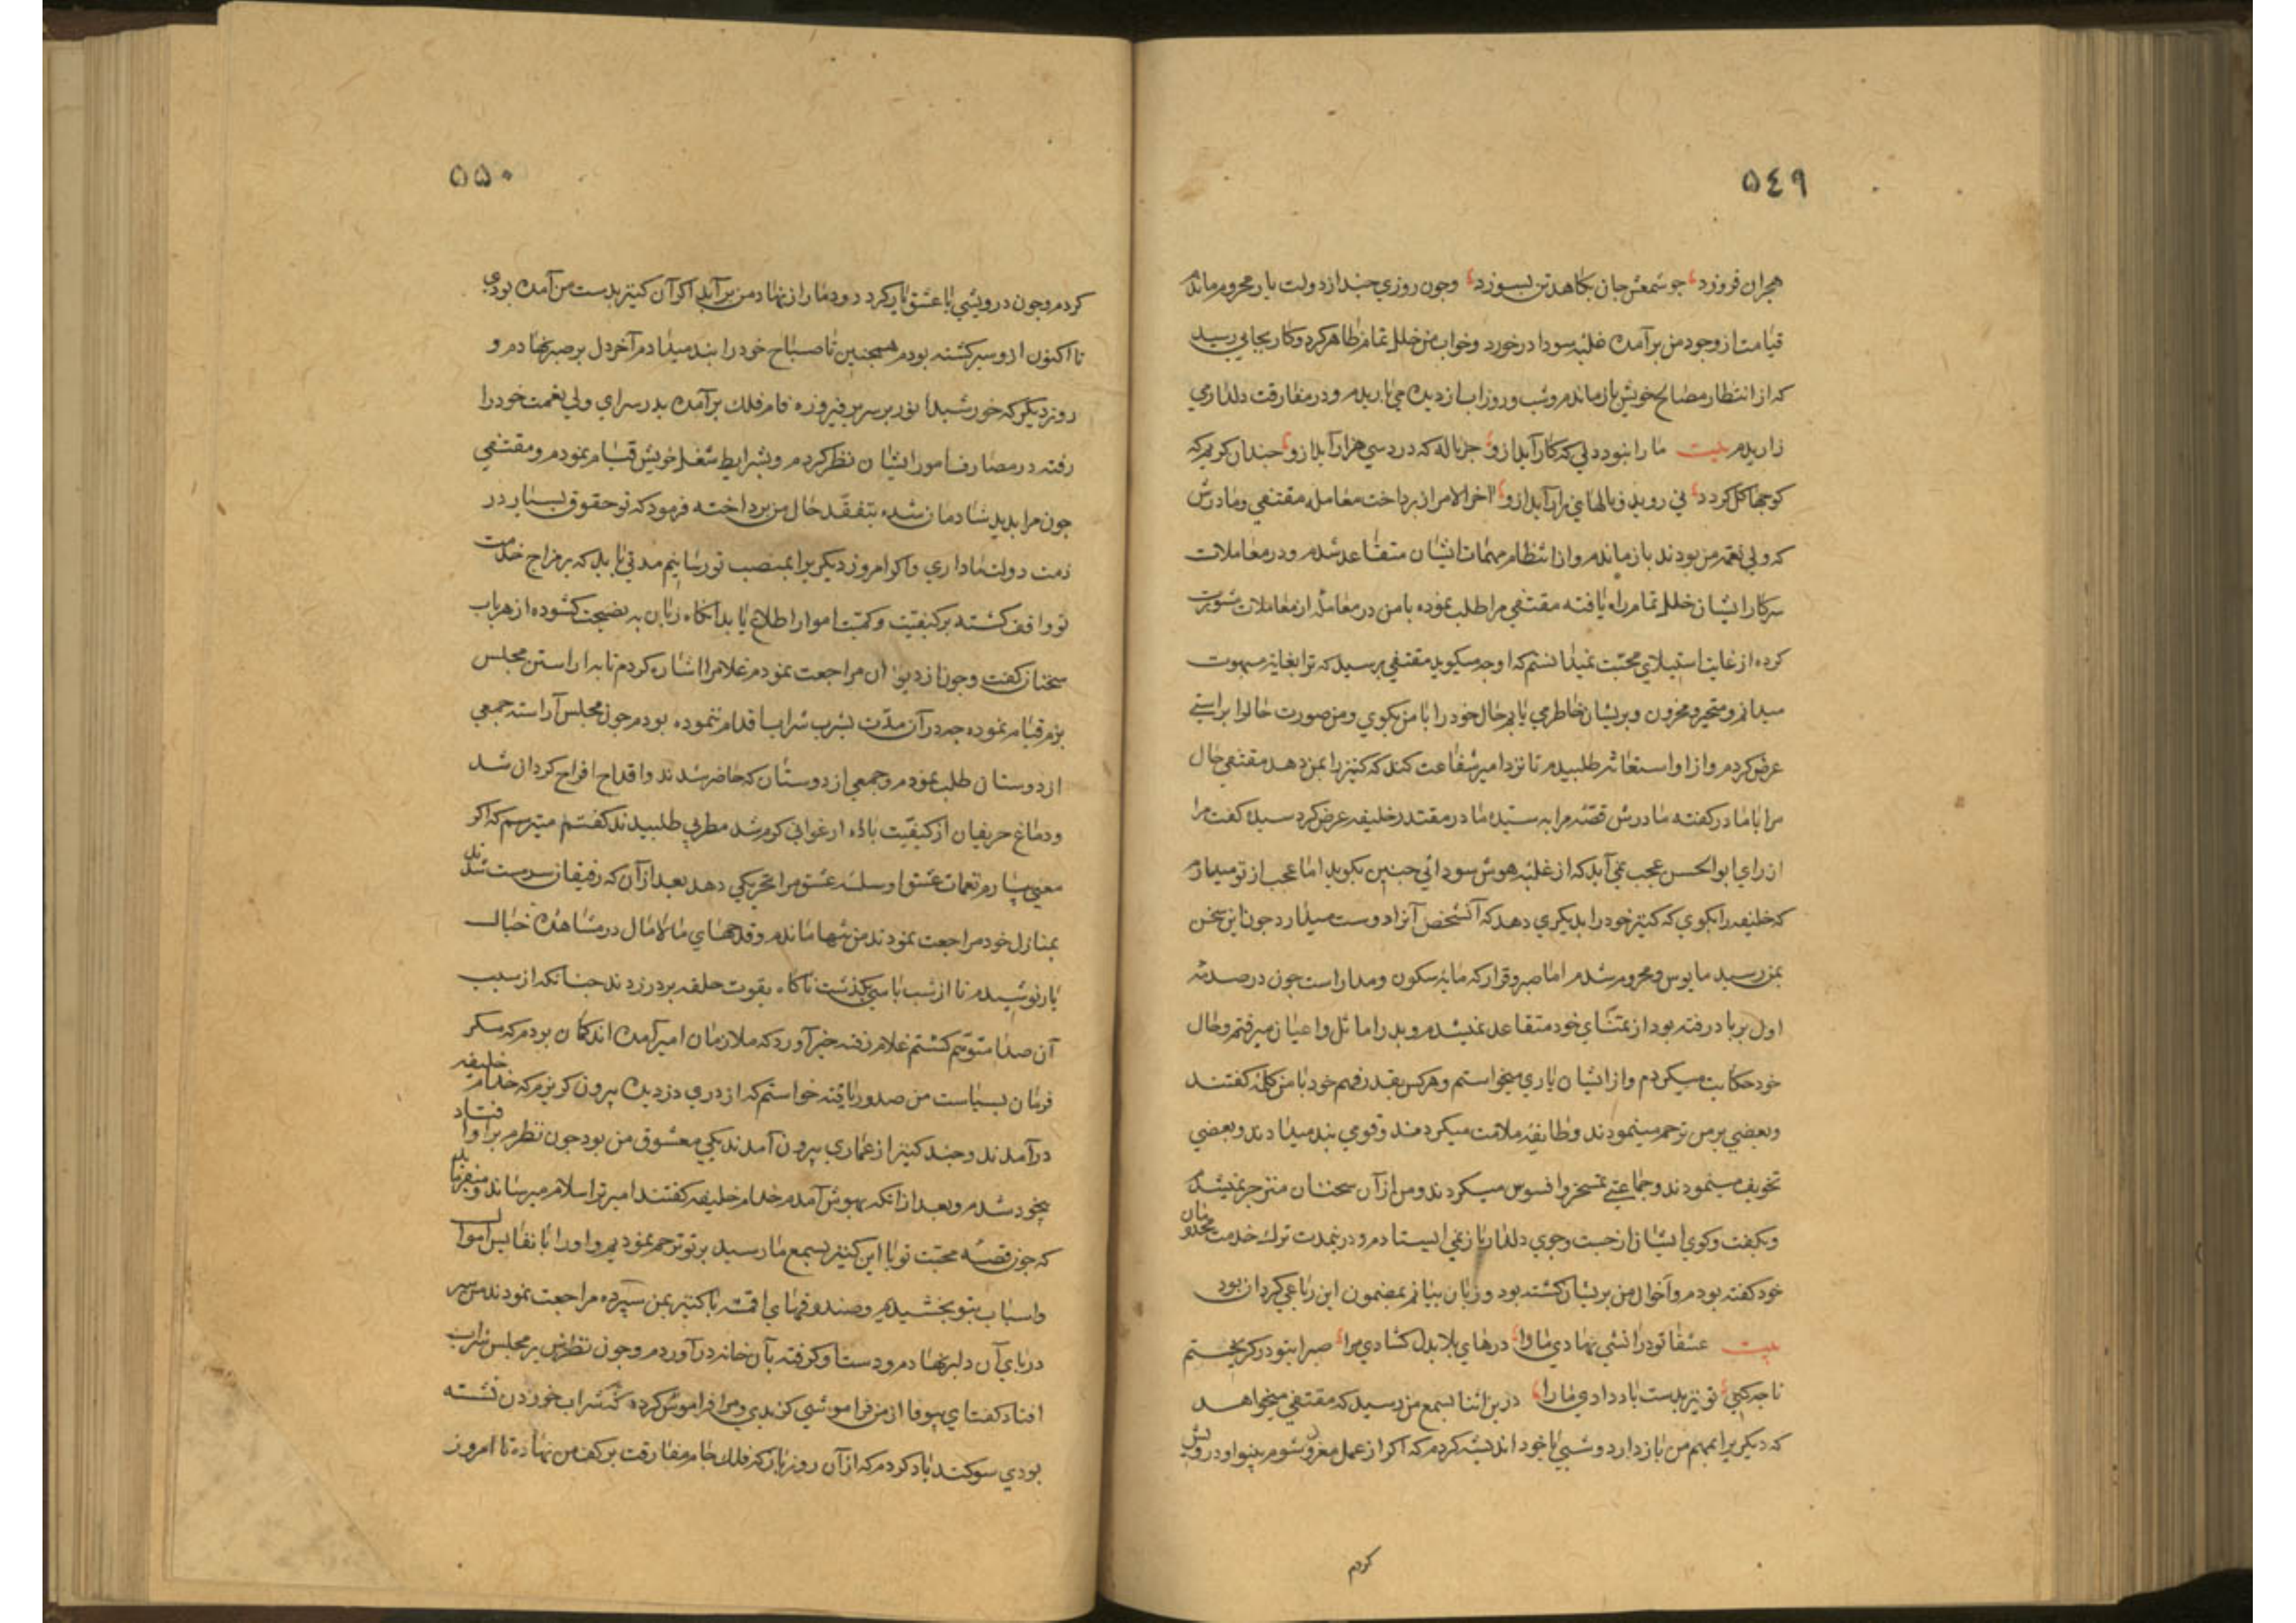 ٥٤٩
هجران فروزد جو شمعش جان بکاهد تن بسوزد وجون روزي جند از دولت يار محروم ماندم
قيامت از وجود من برآمده غلبه سودا درخورد وخواب من خلل تمام ظاهر کرد وکار بجايي رسيد
که از انتظار مصالح خويش باز ماندم وشب وروز اب از ديده مي باريدم ودر مفارقت دلداري
زاريدم بيت ما را نبود دلي که کار آيد ازو جز ناله که در دمي هزار آيد ازو جندان کريم که
کوجها کل کردد ني رويد و نالهاي زار آيد ازو اخر الامر از برداخت معامله مقتفي ومادرش
که ولي نعمه من بودند باز ماندم واز انتظام مهمات ايشان متقاعد شدم ودر معاملات
سرکار ايشان خلل تمام راه يافته مقتفي مرا طلب نموده با من در معامله از معاملات مشورت
کرده از غايت استيلاي محبت نميدانستم که او جه ميکويد مقتفي برسيد که ترا بغايه مبهوت
ميدانم ومتحير ومخزون وبريشان خاطر مي يابم حال خود را با من بکوي ومن صورت حال را براستي
عرض کردم واز او استغاثه طلبيدم تا نزد امير شفاعت کند که کنيز را بمن دهد مقتفي حال
مرا با مادر کفته مادرش قصّه مرا به سيّده مادر مقتدر خليفه عرض کرد سيده کفت مرا
از راي ابوالحسن عجب نمي آيد که از غلبه هوش سودائي جنين بکويد اما عجب از تو ميدارم
که خليفه را بکوي که کنيز خود را بديکري دهد که آنشخص آنرا دوست ميدارد جون اين سخن
بمن رسيد مايوس ومحروم شدم اما صبر وقرار که مايه سکون ومدار است جون در صدمه
اول برباد رفته بود از تمنّاي خود متقاعد نميشدم وبدر اماثل واعيان ميرفتم وحال
خود حکايت ميکردم واز ايشان ياري ميخواستم وهرکس بقدر فهم خود با من کله کفتند
وبعضي بر من ترحم مينمودند وطايفه ملامت ميکردند وقومي بند ميدادند وبعضي
تخويف مينمودند وجماعتي تمسخر وافسوس ميکردند ومن از آن سخنان منزجر نميشدم
وبکفت وکوي ايشان از جست وجوي دلدار باز نمي ايستادم ودر نمدت ترك خدمت مخدومان
خود کفته بودم واخوال من بريشان کشته بود وزبان بيانم بمضمون اين رباعي کردان بود
بيت عشقا تو در اتشي نهادي ما را درهاي بلا بدل کشادي مرا صبرا بتو در کريختم
تا جه کني تو نيز بدست باد دادي ما را درين اثنا بسمع من رسيد که مقتفي ميخواهد
که ديکريرا بمهم من باز دارد وشبي با خود انديشه کردم که اکر از عمل معزول شوم بينوا ودرويش
کردم
٥٥٠
کردم وجون درويشي با عشق يار کرد دود مار از نهاد من برآيد اکر آن کنيز بدست من آمده بودي
تا اکنون ازو سير کشته بودم همجنين تا صباح خود را بند ميدادم آخر دل بر صبر نهادم و
روز ديکر که خورشيد انور بر سرير فيروزه فام فلك برآمده بدر سراي ولي نعمت خود را
رفته در مصارف امور ايشان نظر کردم وبشرايط شغل خويش قيام نمودم ومقتفي
جون مرا بديد شادمان شده بتفقّد حال من برداخته فرمود که تو حقوق بسيار در
ذمت دولت ما داري واکر امروز ديکريرا بمنصب تو رسانيم مدتي بايد که بر مزاج خدمت
تو واقف کشته بر کيفيّت وکميّت اموار اطلاع يابد انکاه زبان به نصيحت کشوده از هر باب
سخنان کفت وجون از ديوان مراجعت نمودم غلامرا اشاره کردم تا به اراستن مجلس
بزم قيام نموده جه در آن مدّت بشرب شراب اقدام ننموده بودم جون مجلس آراسته جمعي
از دوستان طلب نمودم وجمعي از دوستان که حاضر شدند واقداح افراح کردان شد
ودماغ حريفان از کيفيّت باده ارغواني کرم شد مطربي طلبيدند کفتم ميترسم که اکر
معني بيارم نغمات عشق او سلسله عشق مرا تحريکي دهد بعد از آن که رفيقان سرمست شدند
بمنازل خود مراجعت نمودند من تنها ماندم وقدحهاي مالامال در مشاهده خيال
يار نوشيدم تا از شب باسي بکذشت ناکاه بقوت حلقه بر در زدند جنانکه از سبب
آن صدا متوهّم کشتم غلام رفته خبر آورد که ملازمان امير آمده اند کمان بودم که مکر
فرمان بسياست من صدور يافته خواستم که از دري دزديده بيرون کريزم که خدام خليفه
درآمدند وجند کنيز از عماري بيرون آمدند يکي معشوق من بود جون نظرم بر او افتاد
بيخود شدم وبعد از انکه بهوش آمدم خدام خليفه کفتند امير ترا سلام ميرساند وميفرمايد
که جون قصّه محبّت تو با اين کنيز بسمع ما رسيد بر تو ترحم نموديم واو را با نفايس اموال
واسباب بتو بخشيديم وصندوقهاي اقمشه با کنيز بمن سپرده مراجعت نمودند من سر
در باي آن دلبر نهادم ودست او کرفته بآن خانه درآوردم وجون نظرش بر مجلس شراب
افتاد کفت اي بيوفا از من فراموشي کزيدي ومرا فراموش کرده که شراب خوردن نشسته
بودي سوکند ياد کردم که از آن روز باز که فلك جام مفارقت بر کف من نهاده تا امروز